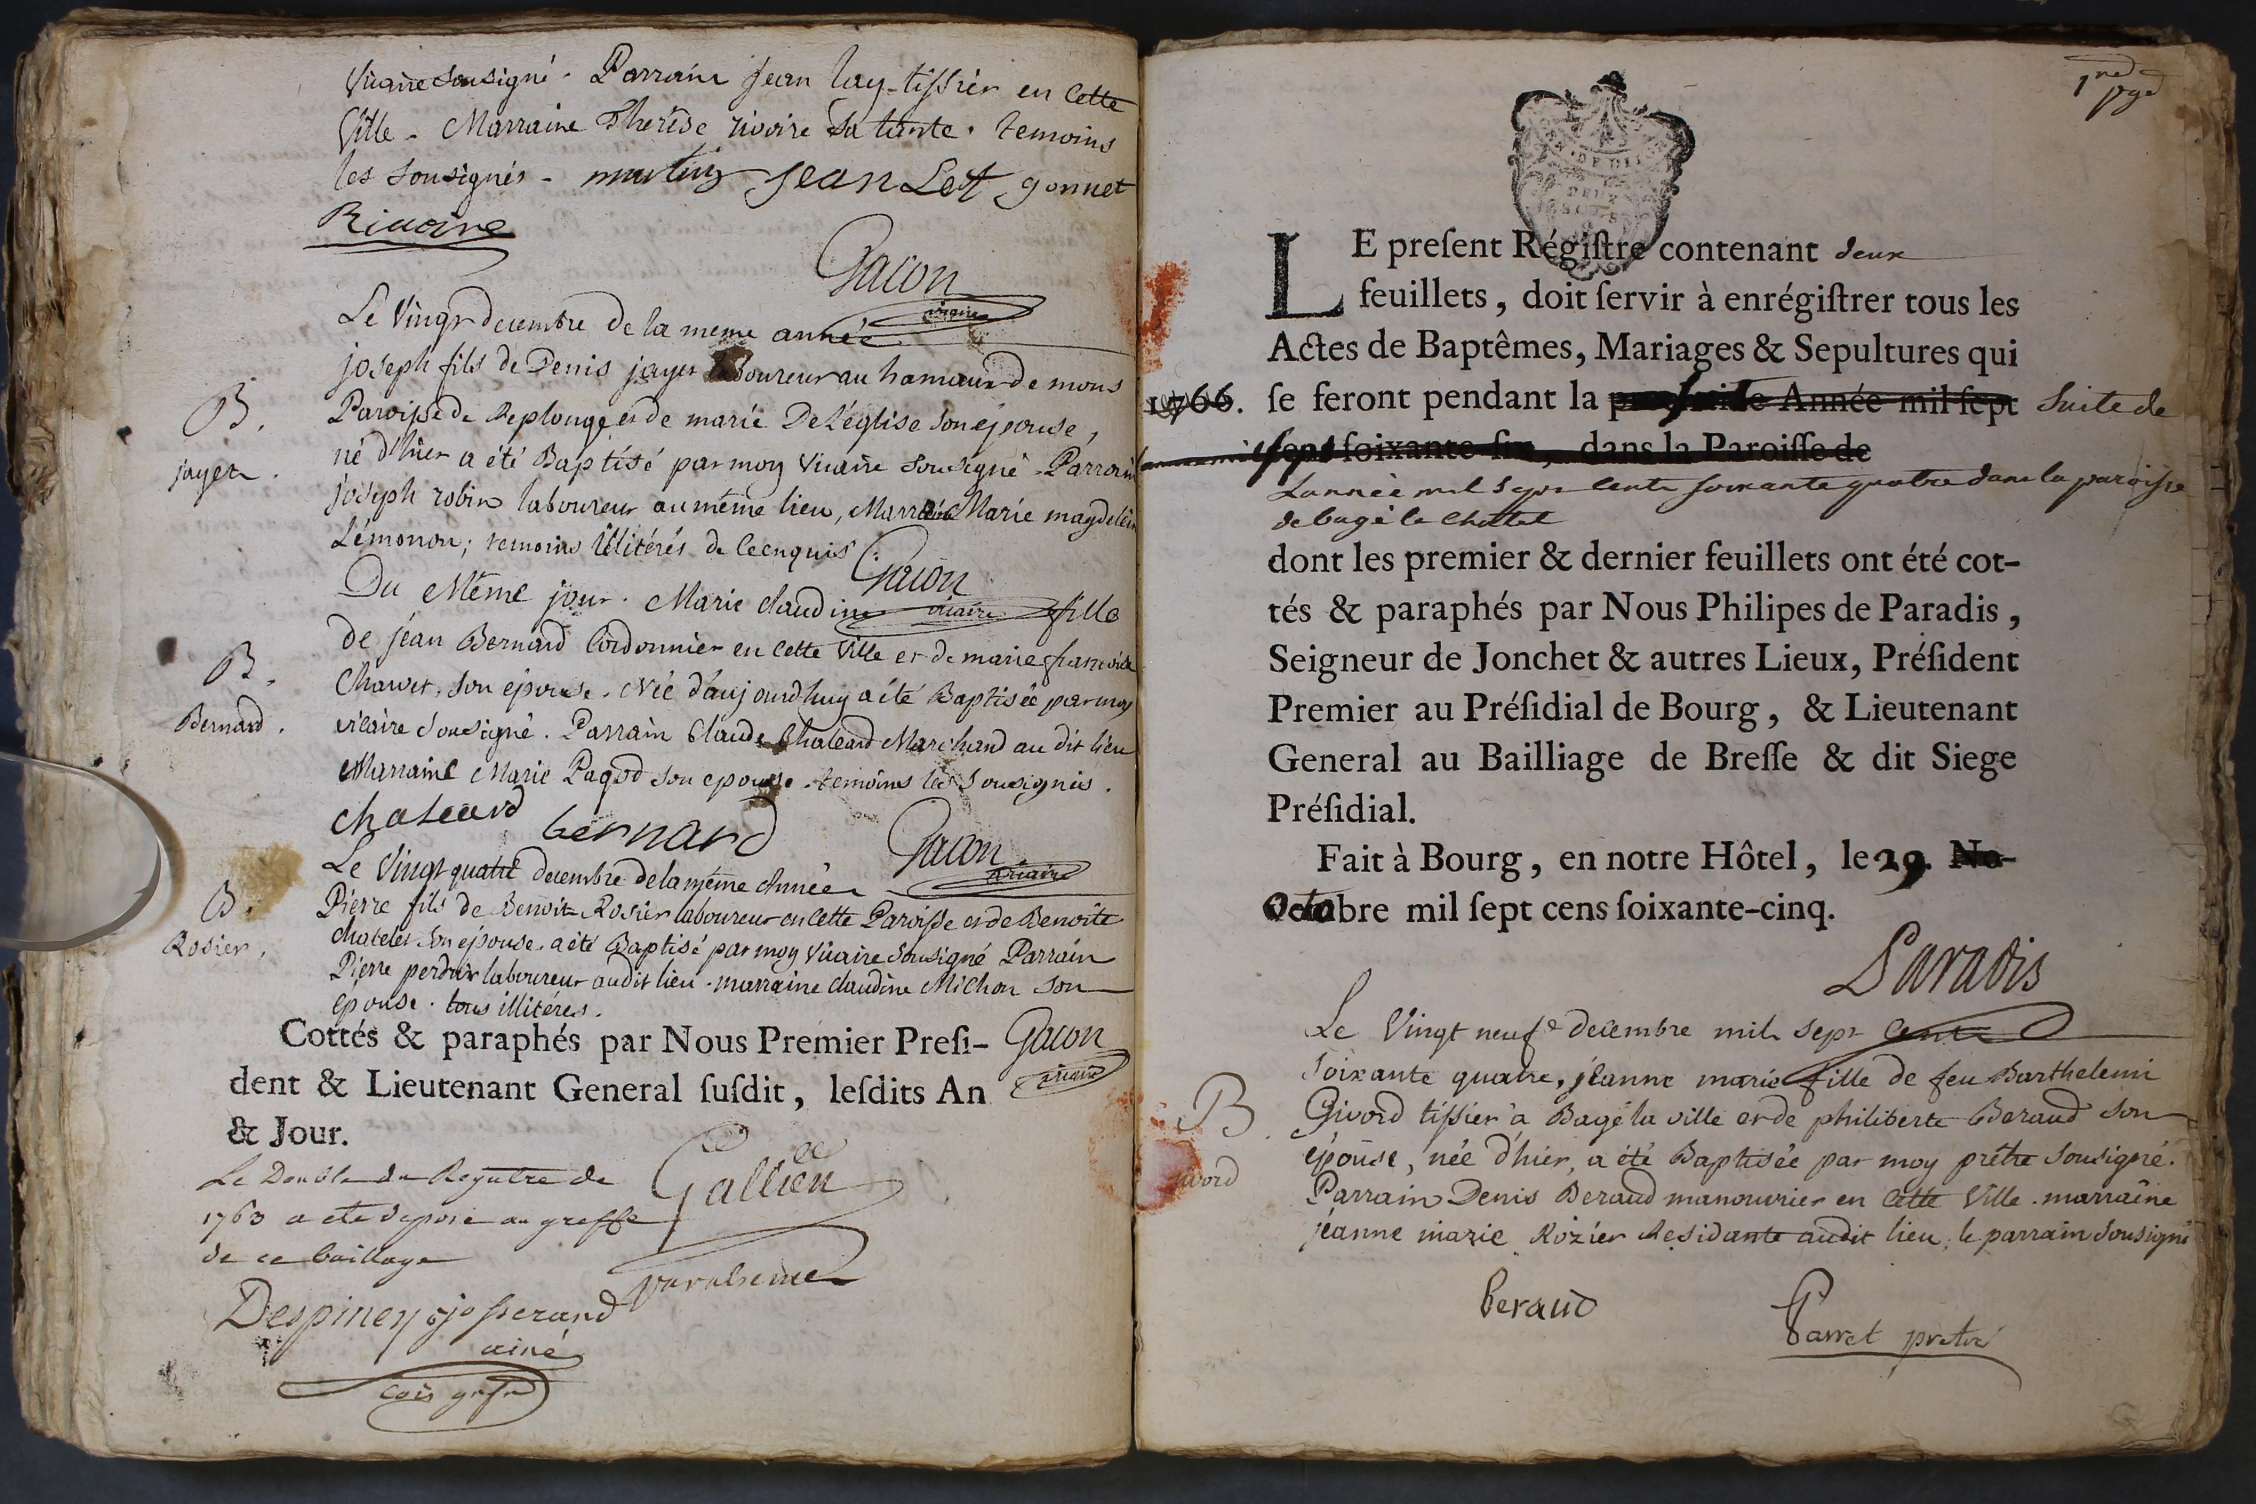 Vicaire sousigné. Parrain Jean lay tissier en Cette
Ville - Marraine Therese rivoire Sa tante. temoins
les Sousignés - martin jean Let gonnet
Rivoire
Gacon
vicaire
Le Vingt decembre de la meme année
joseph fils de Denis jayer laboureur au hameau de mons
B. Paroisse de Replonge et de marie De L'église Son épouse,
jayer. né d'hier a été Baptisé par moy Vicaire Sousigné. Parrain
joseph robin laboureur au même lieu, Marraine Marie magdelein
Lémonon; temoins illitérés de ce enquis.
Gacon
vicaire
Du Même jour. Marie claudine fille
de jean Bernard Cordonnier en Cette Ville et de marie francoise
B. Charvet, son épouse. Née d'aujourdhuy a été Baptisée par moy
Bernard. vicaire Sousigné. Parrain Claude Chaleard Marchand au dit lieu
Marraine Marie Pagod son epouse. temoins les Sousignés.
chaleard bernard
Gacon
vicaire
Le Vingt quatre decembre de la même Année
B. Pierre fils de Benoit Rosier laboureur en Cette Paroisse et de Benoite
Rosier. chatelet Son épouse. a été Baptisé par moy Vicaire Sousigné Parrain
Pierre perdrix laboureur audit lieu. marraine claudine Michon son
épouse. tous illitérés.
Gacon
vicaire
Cottés & paraphés par Nous Premier Presi-
dent & Lieutenant General susdit, lesdits An
& Jour.
Gallien
Le Double du Registre de
1763 a ete depose au greffe
de ce bailliage
Despiney josserand
ainé
1re page
LE present Régistre contenant deux
feuillets, doit servir à enrégistrer tous les
Actes de Baptêmes, Mariages & Sepultures qui
1766. se feront pendant la presente Année mil sept Suite de
cens soixante-six, dans la Paroisse de
Lannée mil sept cents soixante quatre dans la paroisse
de bagé le Chatel
dont les premier & dernier feuillets ont été cot-
tés & paraphés par Nous Philipes de Paradis,
Seigneur de Jonchet & autres Lieux, Président
Premier au Présidial de Bourg, & Lieutenant
General au Bailliage de Bresse & dit Siege
Présidial.
Fait à Bourg, en notre Hôtel, le 29. No-
Octobre mil sept cens soixante-cinq.
Paradis
Le Vingt neuf decembre mil sept Cents
Soixante quatre, jeanne marie fille de feu Barthelemi
B. Givord tissier à Bagé la ville et de philiberte Beraud Son
Givord épouse, née d'hier, a été Baptisée par moy prêtre Sousigné.
Parrain Denis Beraud manouvrier en Cette Ville. marraine
jeanne marie Rozier Residante audit lieu; le parrain Sousigné
beraud
Parret pretre